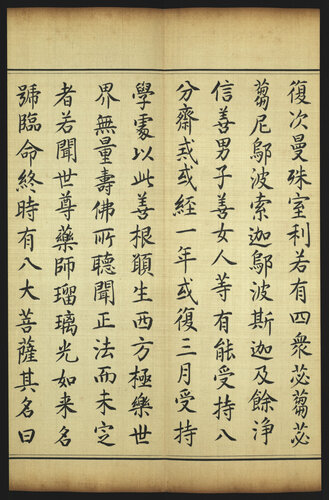 復次曼殊室利若有四衆苾蒭苾
蒭尼鄔波索迦鄔波斯迦及餘淨
信善男子善女人等有能受持八
分齋戒或經一年或復三月受持
學處以此善根願生西方極樂世
界無量壽佛所聽聞正法而未定
者若聞世尊藥師瑠璃光如来名
號臨命終時有八大菩薩其名曰